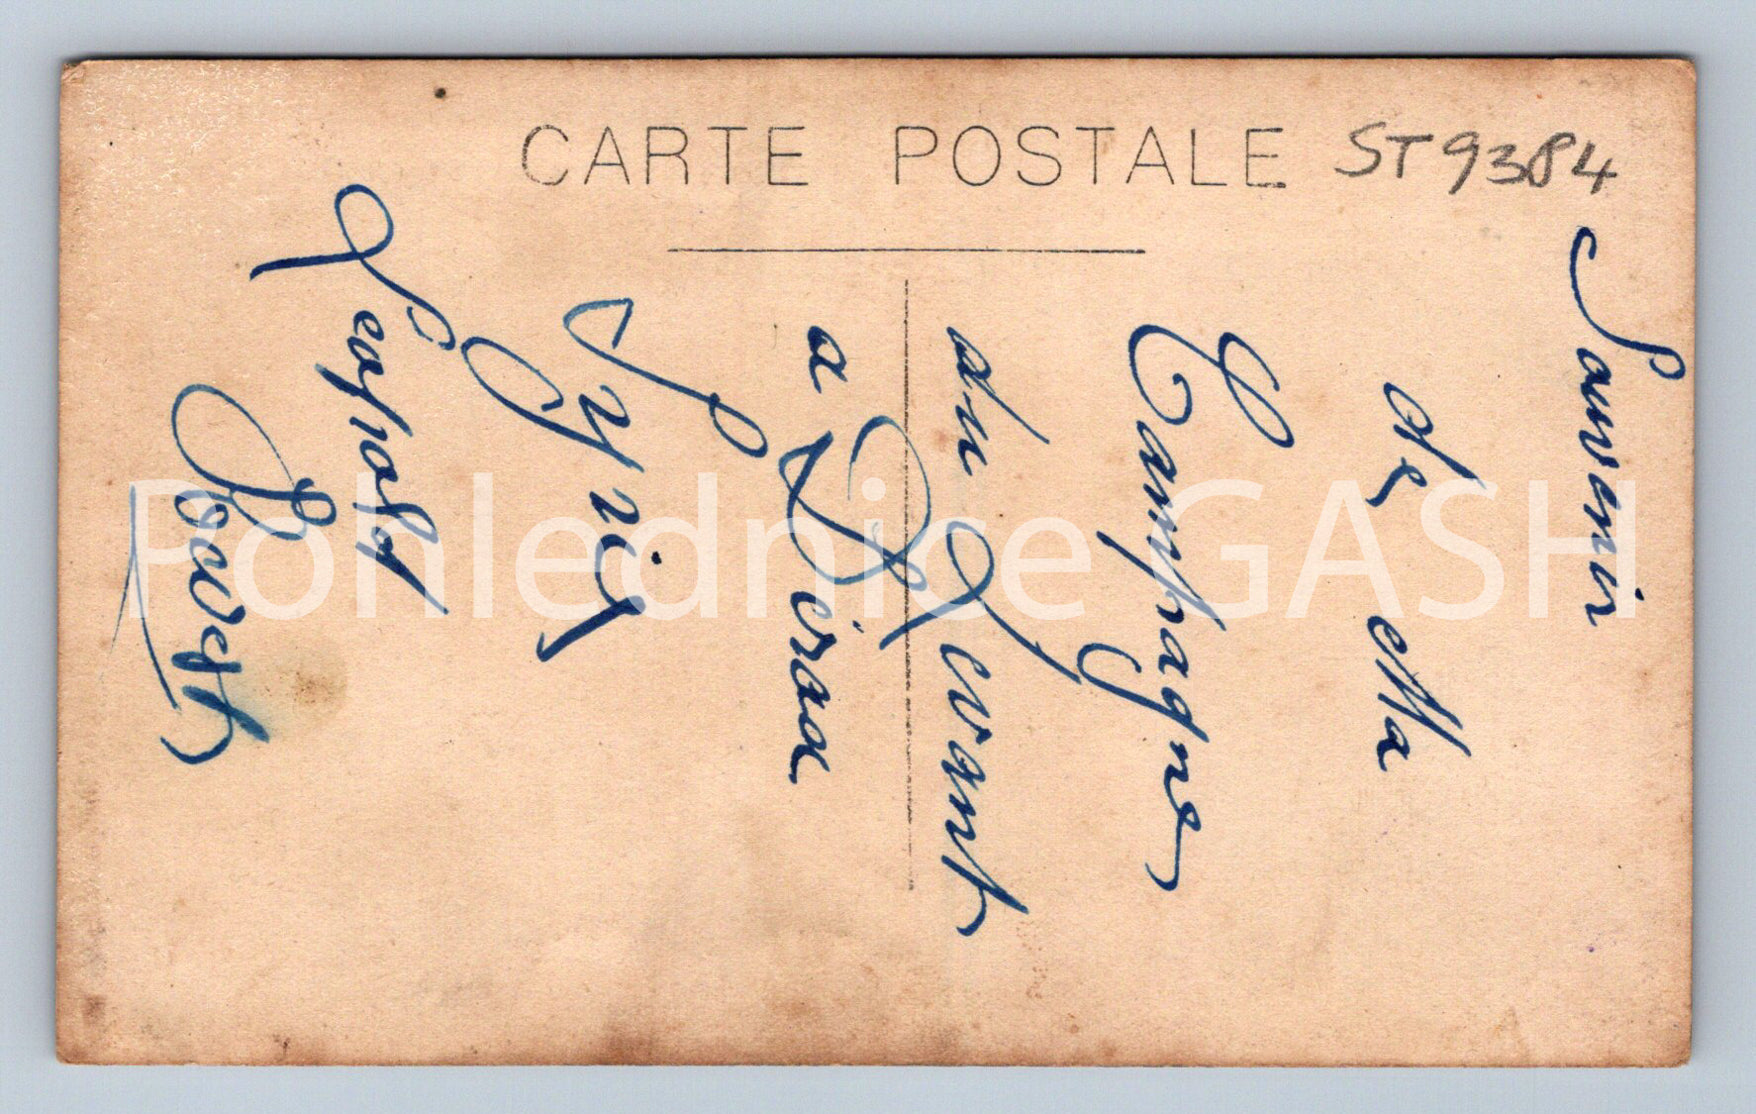 CARTE POSTALE
ST9384
Souvenir
de Ma
Campagne
du Levant
a Diraa
Syrie
Leopold
Pohlednice GASH